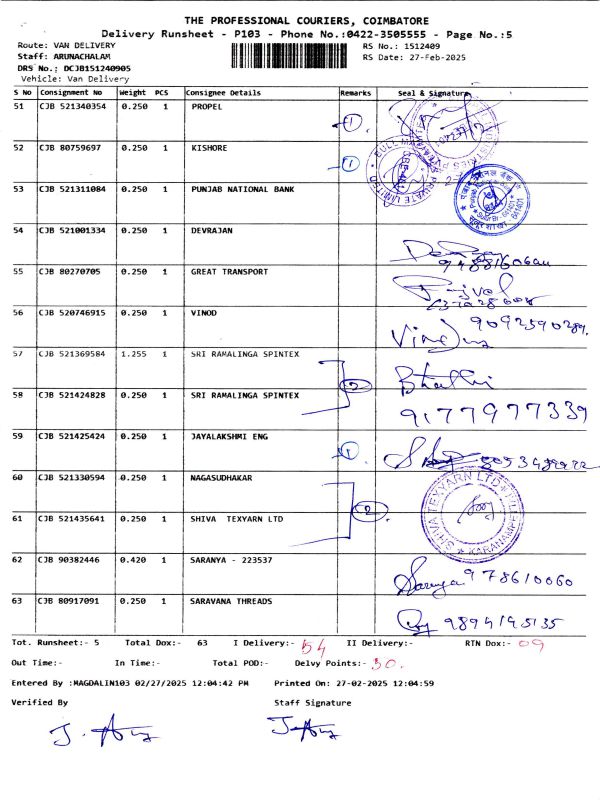 THE PROFESSIONAL COURIERS, COIMBATORE
Delivery Runsheet - P103 - Phone No.:0422-3505555 - Page No.:5
Route: VAN DELIVERY RS No.: 1512409
Staff: ARUNACHALAM RS Date: 27-Feb-2025
DRS No.: DCJB1S1240905
Vehicle: Van Delivery
S No Consignment No Weight PCS Consignee Details Remarks Seal & Signature
51 CJB 521340354 0.250 1 PROPEL 1
52 CJB 80759697 0.250 1 KISHORE 1
53 CJB 521311084 0.250 1 PUNJAB NATIONAL BANK
54 CJB 521001334 0.250 1 DEVRAJAN
55 CJB 80270705 0.250 1 GREAT TRANSPORT
56 CJB 520746915 0.250 1 VINOD 9092590289
57 CJB 521369584 1.255 1 SRI RAMALINGA SPINTEX 2
58 CJB 521424828 0.250 1 SRI RAMALINGA SPINTEX 9177977339
59 CJB 521425424 0.250 1 JAYALAKSHMI ENG 1
60 CJB 521330594 0.250 1 NAGASUDHAKAR 2
SHIVA TEXYARN LTD
61 CJB 521435641 0.250 1 SHIVA TEXYARN LTD
62 CJB 90382446 0.420 1 SARANYA - 223537 Saranya 978610060
63 CJB 80917091 0.250 1 SARAVANA THREADS 9894195135
Tot. Runsheet:- 5 Total Dox:- 63 I Delivery:- 54 II Delivery:- RTN Dox:- 09
Out Time:- In Time:- Total POD:- Delvy Points:- 30.
Entered By :MAGDALIN103 02/27/2025 12:04:42 PM Printed On: 27-02-2025 12:04:59
Verified By Staff Signature